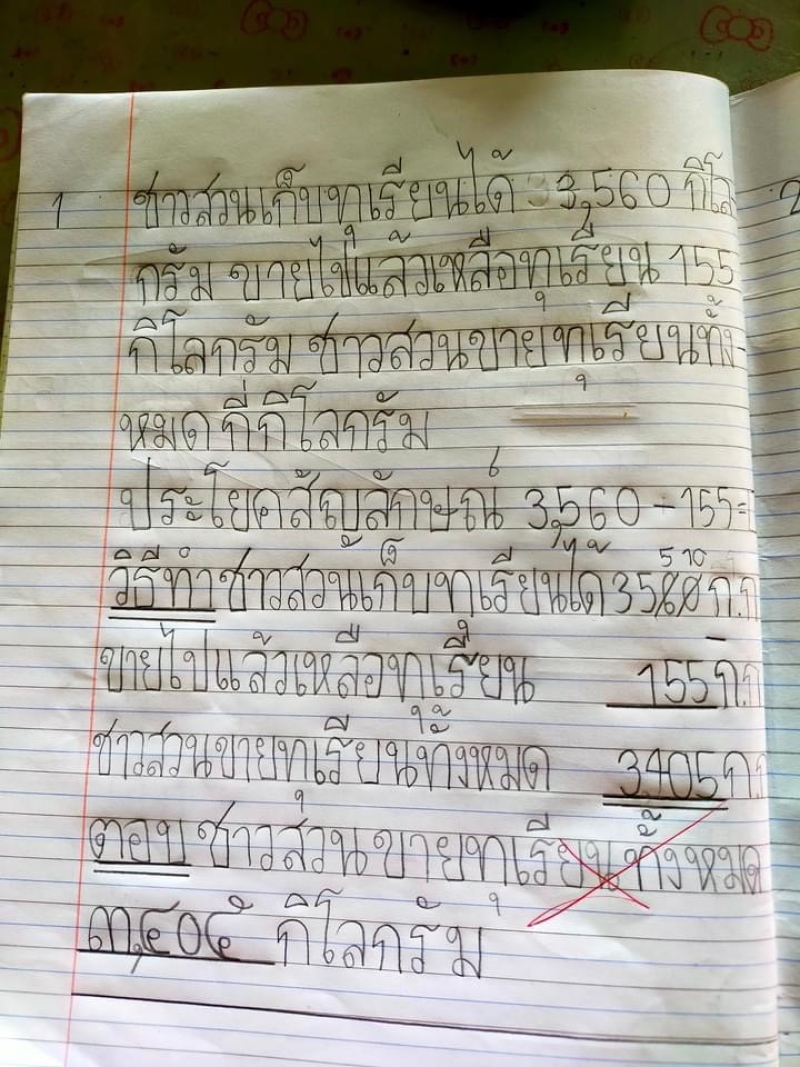 1 ชาวสวนเก็บทุเรียนได้ 3,560 กิโล
กรัม ขายไปแล้วเหลือทุเรียน 155
กิโลกรัม ชาวสวนขายทุเรียนทั้ง-
หมดกี่กิโลกรัม
ประโยคสัญลักษณ์ 3,560 - 155 =
5 10
วิธีทำ ชาวสวนเก็บทุเรียนได้ 3560 ก.ก
ขายไปแล้วเหลือทุเรียน 155 ก.ก
ชาวสวนขายทุเรียนทั้งหมด 3405 ก.ก
ตอบ ชาวสวนขายทุเรียนทั้งหมด
๓,๔๐๕ กิโลกรัม
2